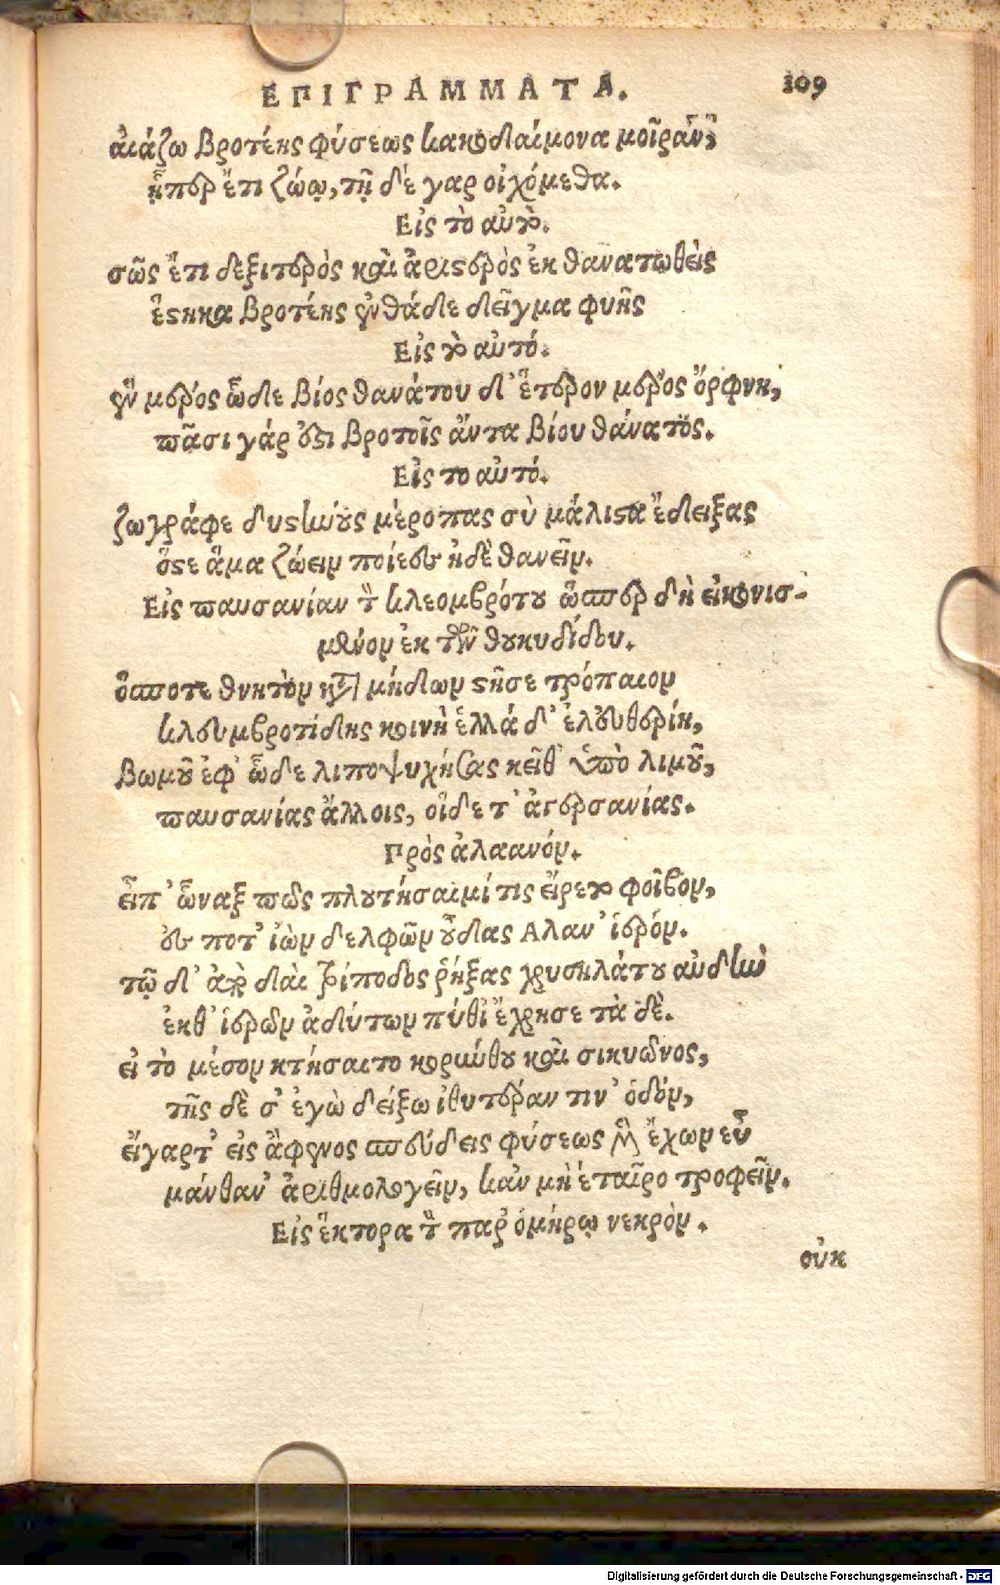 ΕΠΙΓΡΑΜΜΑΤΑ. 109
αἰάζω βροτέης φύσεως κακοδαίμονα μοῖραν,
ᾗπερ ἔτι ζώῳ, τῇ δὲ γαρ οἰχόμεθα.
Εἰς τὸ αὐτό.
σῶς ἔτι δεξιτερὸς καὶ ἀριστερὸς ἐκ θανατωθεὶς
ἕστηκα βροτέης ἐνθάδε δεῖγμα φυῆς
Εἰς τὸ αὐτό.
ἓν μέρος ὧδε βίος θανάτου δ' ἕτερον μέρος ὄρφνη,
πᾶσι γάρ ἐστι βροτοῖς ἄντα βίου θάνατος.
Εἰς το αὐτό.
ζωγράφε δυστήνους μέροπας σὺ μάλιστα ἔδειξας
ὅστε ἅμα ζώειν ποίεες ἠδὲ θανεῖν.
Εἰς παυσανίαν τὸν κλεομβρότου ὥσπερ δὴ εἰκονισ-
μένον ἐκ τῶν θουκυδίδου.
ὅπποτε θνητὸν κατὰ μήδων στῆσε τρόπαιον
κλευμβροτίδης κοινὴ ἑλλά δ' ἐλευθερίη,
βωμοῦ ἐφ' ὧδε λιποψυχήσας κεῖθ' ὑπὸ λιμοῦ,
παυσανίας ἄλλοις, οἵδε τ' ἀγερσανίας.
Πρὸς ἀλαανόν.
εἶπ' ὦναξ πῶς πλουτήσαιμί τις εἴρετο φοῖβον,
ἐς ποτ' ἰὼν δελφῶν οὖδας Αλαν' ἱερόν.
τῷ δ' ἀπὸ διαὶ τρίποδος ῥήξας χρυσηλάτου αὐδὴν
ἐκθ' ἱερῶν ἀδύτων πύθι' ἔχρησε τὰ δὲ.
εἰ τὸ μέσον κτήσαιτο κορίνθου καὶ σικυῶνος,
τῆς δὲ σ' ἐγὼ δείξω ἰθυτέραν τιν' ὁδόν,
εἴγαρτ' εἰς ἄφενος σπεύδεις φύσεως μὴ ἔχων εὖ
μάνθαν' ἀριθμολογεῖν, κἀν μὴ ἑταῖρο τροφεῖν.
Εἰς ἕκτορα τὸν παρ' ὁμήρῳ νεκρὸν.
οὐκ
Digitalisierung gefördert durch die Deutsche Forschungsgemeinschaft - DFG